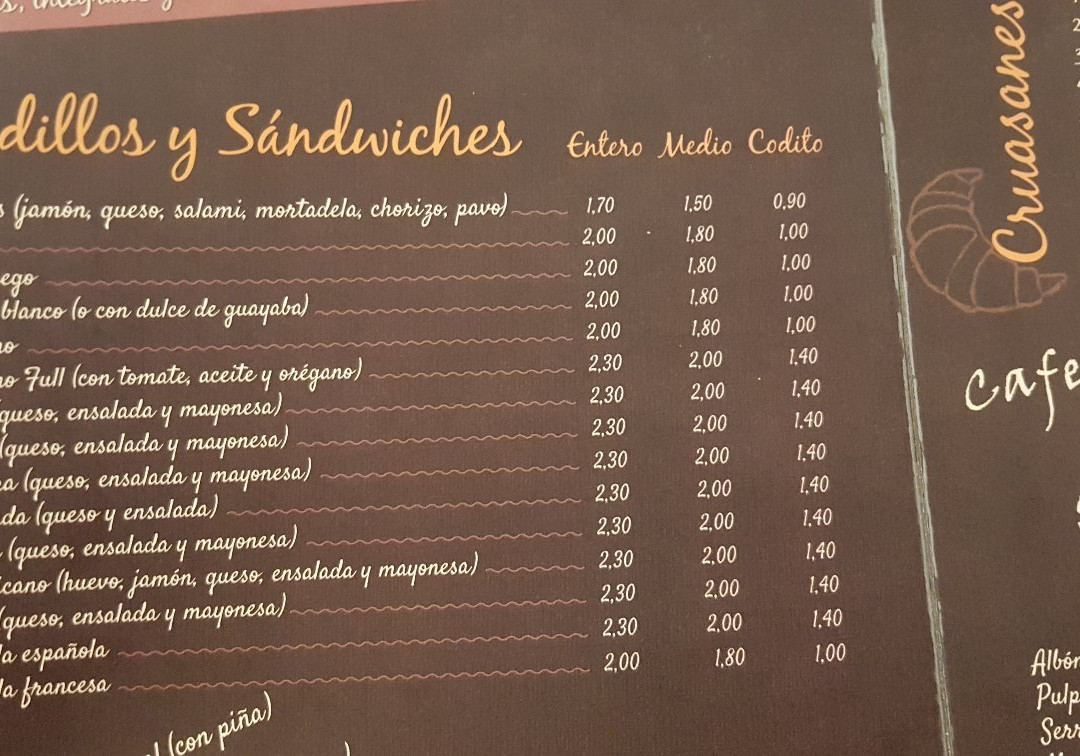 dillos y Sándwiches Entero Medio Codito
s (jamón, queso, salami, mortadela, chorizo, pavo) 1,70 1,50 0,90
2,00 1,80 1,00
ego 2,00 1,80 1,00
blanco (o con dulce de guayaba) 2,00 1,80 1,00
o 2,00 1,80 1,00
o Full (con tomate, aceite y orégano) 2,30 2,00 1,40
queso, ensalada y mayonesa) 2,30 2,00 1,40
(queso, ensalada y mayonesa) 2,30 2,00 1,40
a (queso, ensalada y mayonesa) 2,30 2,00 1,40
da (queso y ensalada) 2,30 2,00 1,40
(queso, ensalada y mayonesa) 2,30 2,00 1,40
cano (huevo, jamón, queso, ensalada y mayonesa) 2,30 2,00 1,40
(queso, ensalada y mayonesa) 2,30 2,00 1,40
a española 2,30 2,00 1,40
a francesa 2,00 1,80 1,00
(con piña)
Cruasanes
cafe
Albón
Pulp
Serr